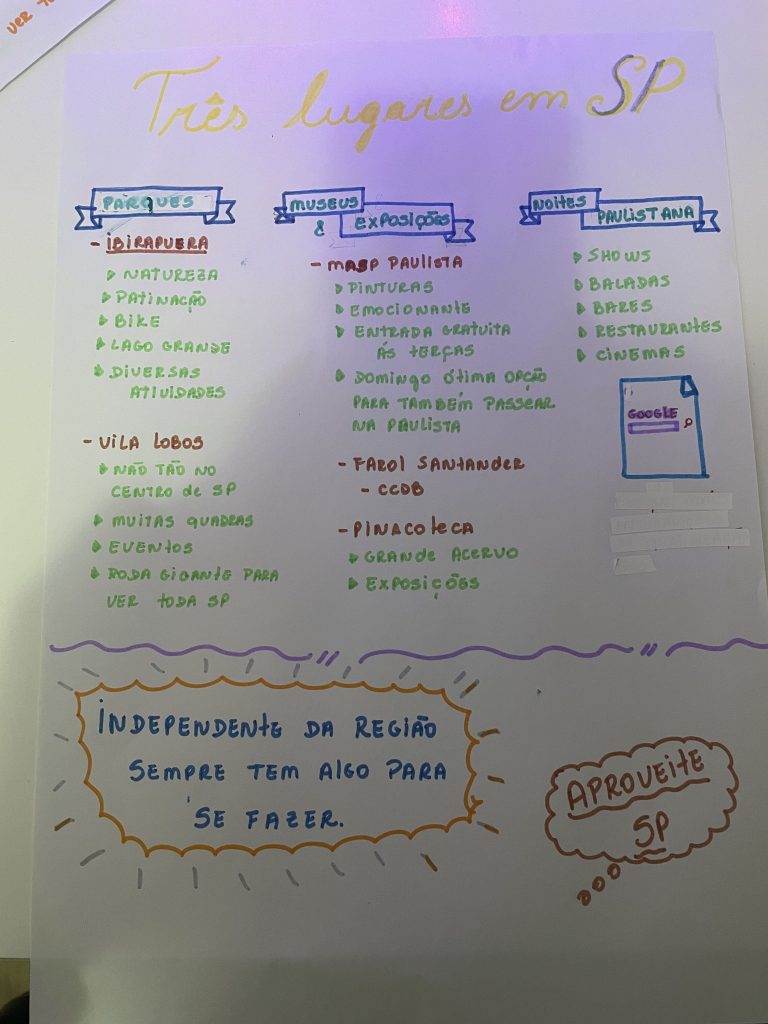 VER TO
Três lugares em SP
PARQUES
- IBIRAPUERA
NATUREZA
PATINAÇÃO
BIKE
LAGO GRANDE
DIVERSAS
ATIVIDADES
- VILA LOBOS
NÃO TÃO NO
CENTRO de SP
MUITAS QUADRAS
EVENTOS
RODA GIGANTE PARA
VER TODA SP
MUSEUS
& EXPOSIÇÕES
- MASP PAULISTA
PINTURAS
EMOCIONANTE
ENTRADA GRATUITA
ÁS TERÇAS
DOMINGO ÓTIMA OPÇÃO
PARA TAMBÉM PASSEAR
NA PAULISTA
- FAROL SANTANDER
- CCDB
- PINACOTECA
GRANDE ACERVO
EXPOSIÇÕES
NOITES
PAULISTANA
SHOWS
BALADAS
BARES
RESTAURANTES
CINEMAS
GOOGLE
INDEPENDENTE DA REGIÃO
SEMPRE TEM ALGO PARA
SE FAZER.
APROVEITE
SP